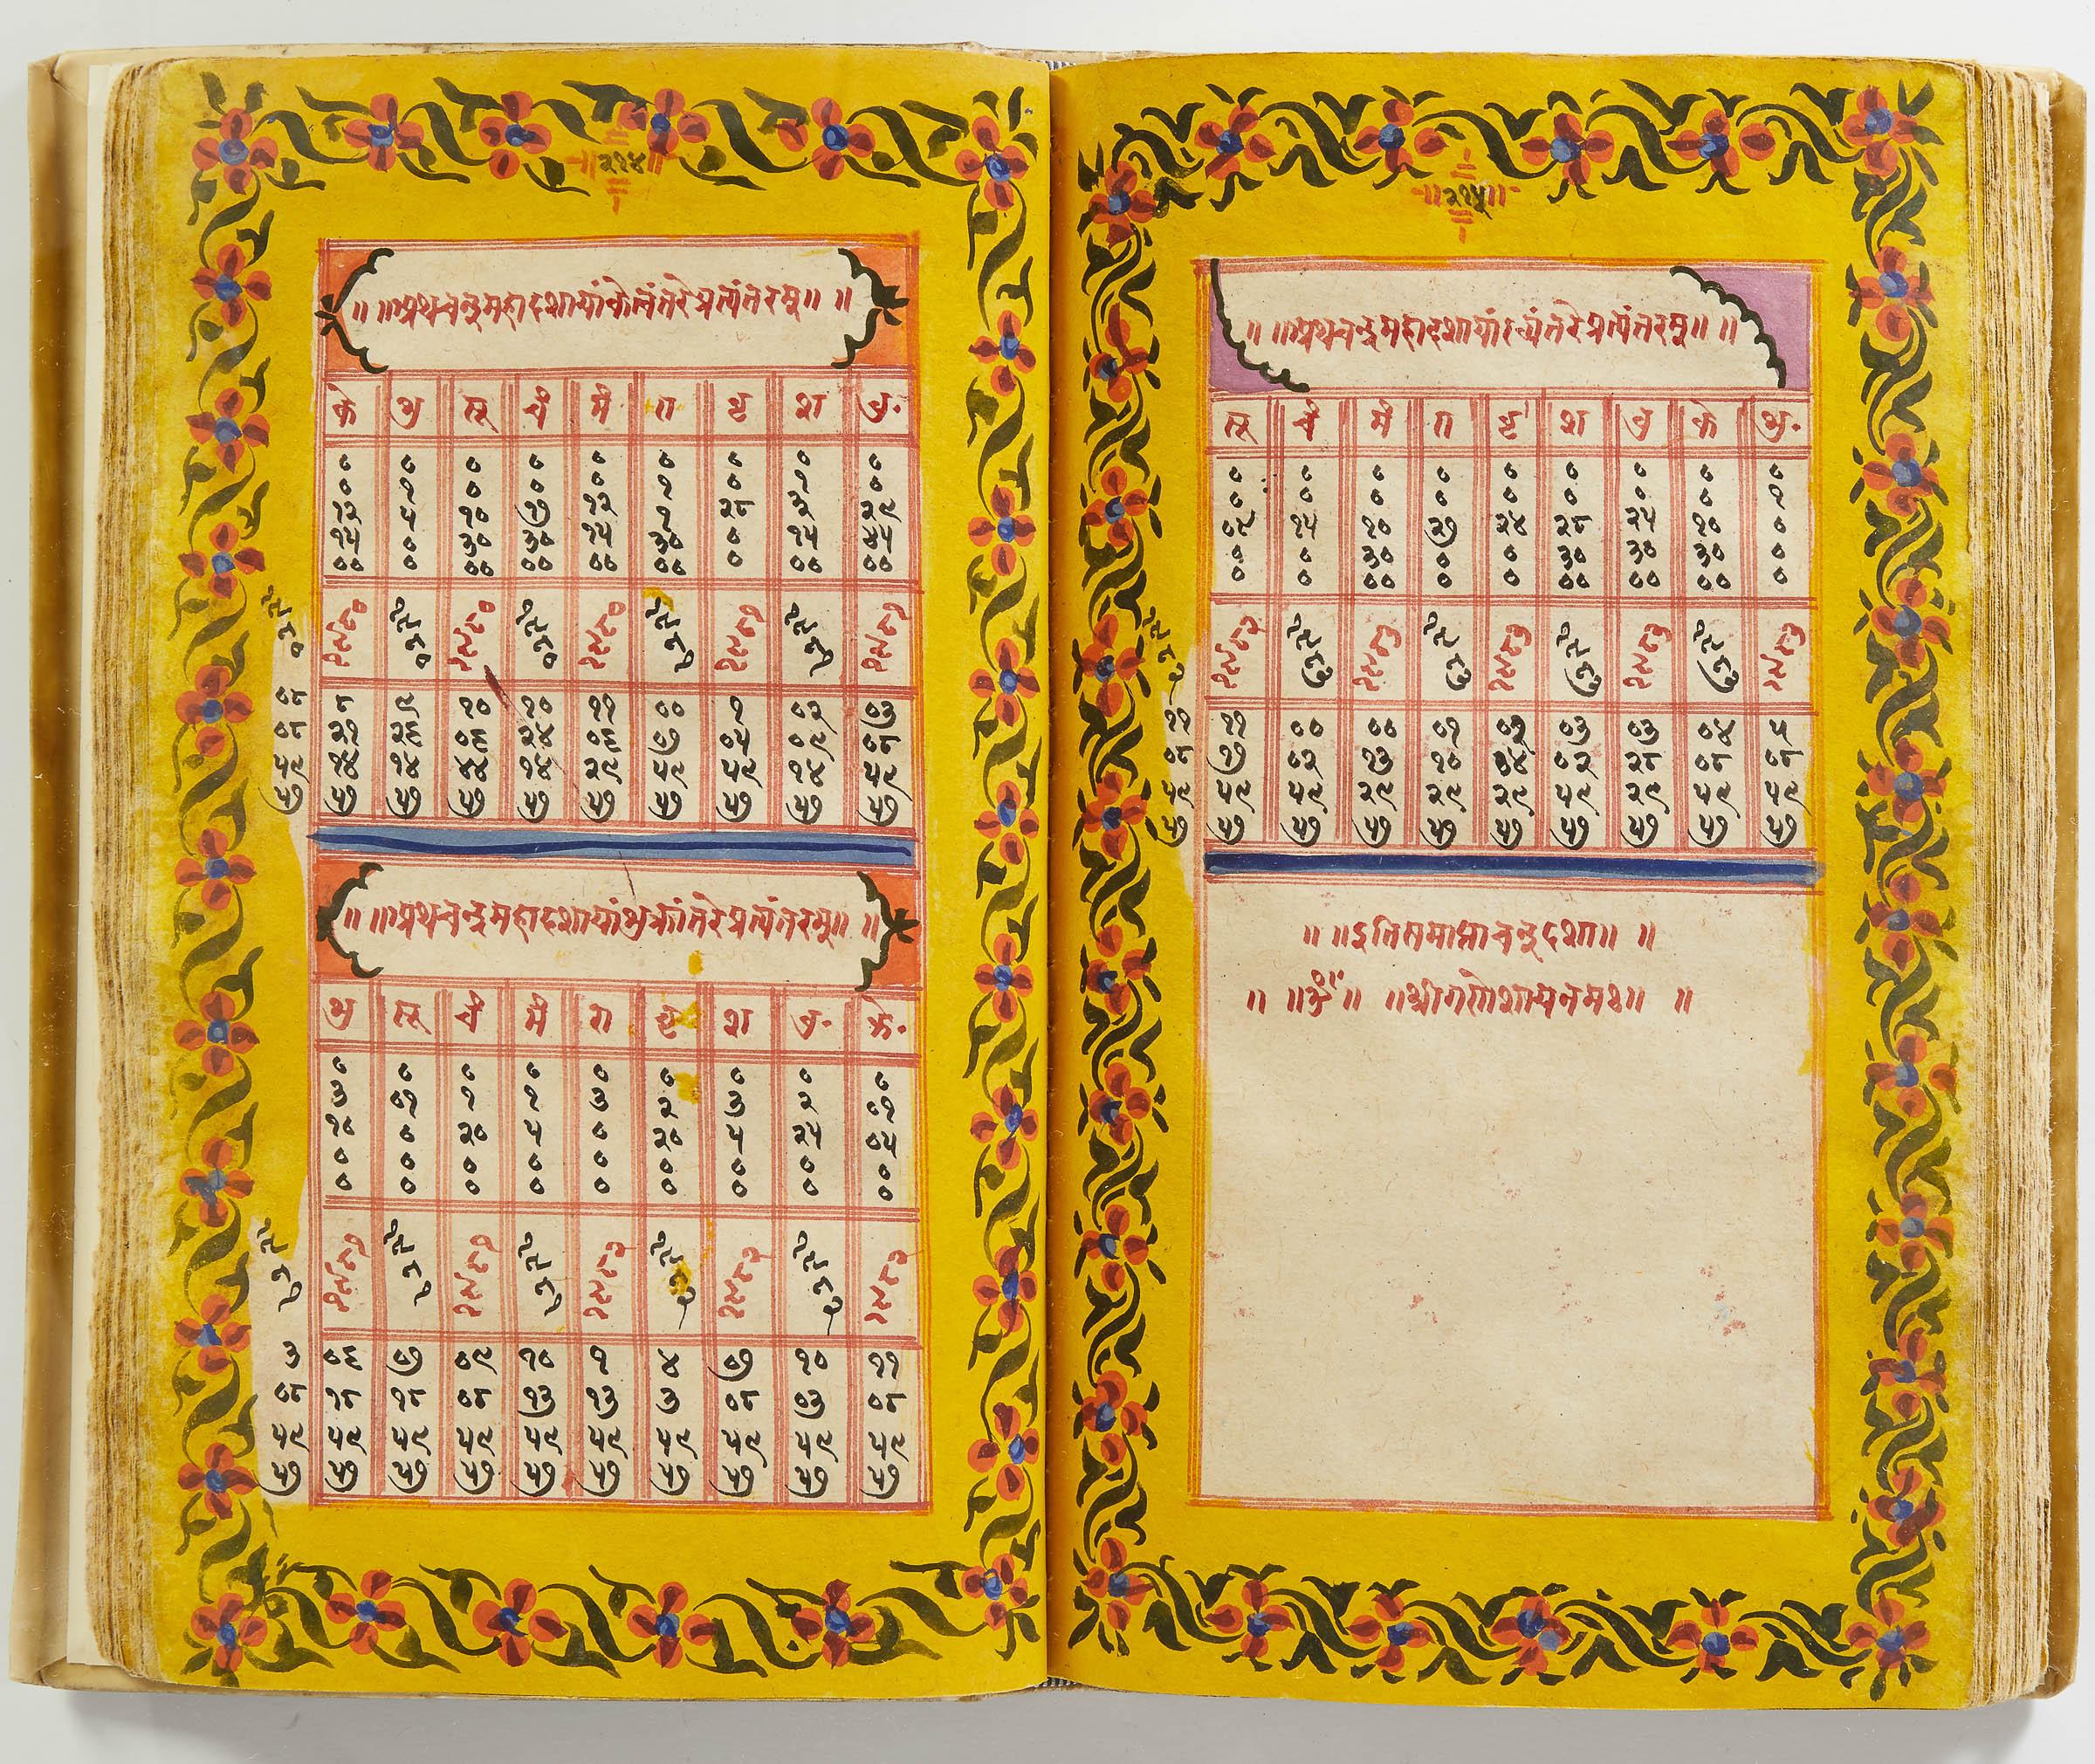 ॥२१४॥
॥ ॥अथचन्द्रमहादशायांकेत्वंतरेप्रत्यंतरम्॥ ॥
के शु सू चं मं रा बृ श बु.
० ० ० ० ० ० ० ० ०
० १ ० ० ० १ ० १ ०
१२ ५ १० १७ १२ १ २८ ३ २९
१५ ० ३० ३० १५ ३० ० १५ ४५
०० ० ०० ०० ०० ०० ० ०० ००
१९८० १९८० १९८० १९८० १९८० १९८० १९८१ १९८१ १९८१ १९८१
०८ ८ ९ १० १० ११ ०० १ ०२ ०३
०८ २१ २६ ०६ २४ ०६ ०७ ०५ ०९ ०८
५९ १४ १४ ४४ १४ २९ ५९ ५९ १४ ५९
५७ ५७ ५७ ५७ ५७ ५७ ५७ ५७ ५७ ५७
॥ ॥अथचन्द्रमहादशायांशुक्रांतरेप्रत्यंतरम्॥ ॥
शु सू चं मं रा बृ श बु. के.
० ० ० ० ० ० ० ० ०
३ ०१ १ १ ३ २ ३ २ ०१
१० ० २० ५ ० २० ५ २५ ०५
० ० ० ० ० ० ० ० ०
० ० ० ० ० ० ० ० ०
१९८१ १९८१ १९८१ १९८१ १९८१ १९८२ १९८२ १९८२ १९८२ १९८२
३ ०६ ०७ ०९ १० १ ४ ०७ १० ११
०८ १८ १८ ०८ १३ १३ ३ ०८ ०३ ०८
५९ ५९ ५९ ५९ ५९ ५९ ५९ ५९ ५९ ५९
५७ ५७ ५७ ५७ ५७ ५७ ५७ ५७ ५७ ५७
॥२१५॥
॥ ॥अथचन्द्रमहादशायांरव्यंतरेप्रत्यंतरम्॥ ॥
सू चं मं रा बृ श बु के शु.
० ० ० ० ० ० ० ० ०
० ० ० ० ० ० ० ० १
०९ १५ १० २७ २४ २८ २५ १० ०
० ० ३० ० ० ३० ३० ३० ०
० ० ०० ० ० ०० ०० ०० ०
१९८२ १९८२ १९८३ १९८३ १९८३ १९८३ १९८३ १९८३ १९८३ १९८३
११ ११ ०० ०० ०१ ०२ ०३ ०३ ०४ ५
०८ १७ ०२ १३ १० ०४ ०२ २८ ०८ ०८
५९ ५९ ५९ २९ २९ २९ ५९ २९ ५९ ५९
५७ ५७ ५७ ५७ ५७ ५७ ५७ ५७ ५७ ५७
॥ ॥इतिसमाप्ताचन्द्रदशा॥ ॥
॥ ॥ॐ॥ ॥श्रीगणेशायनमः॥ ॥